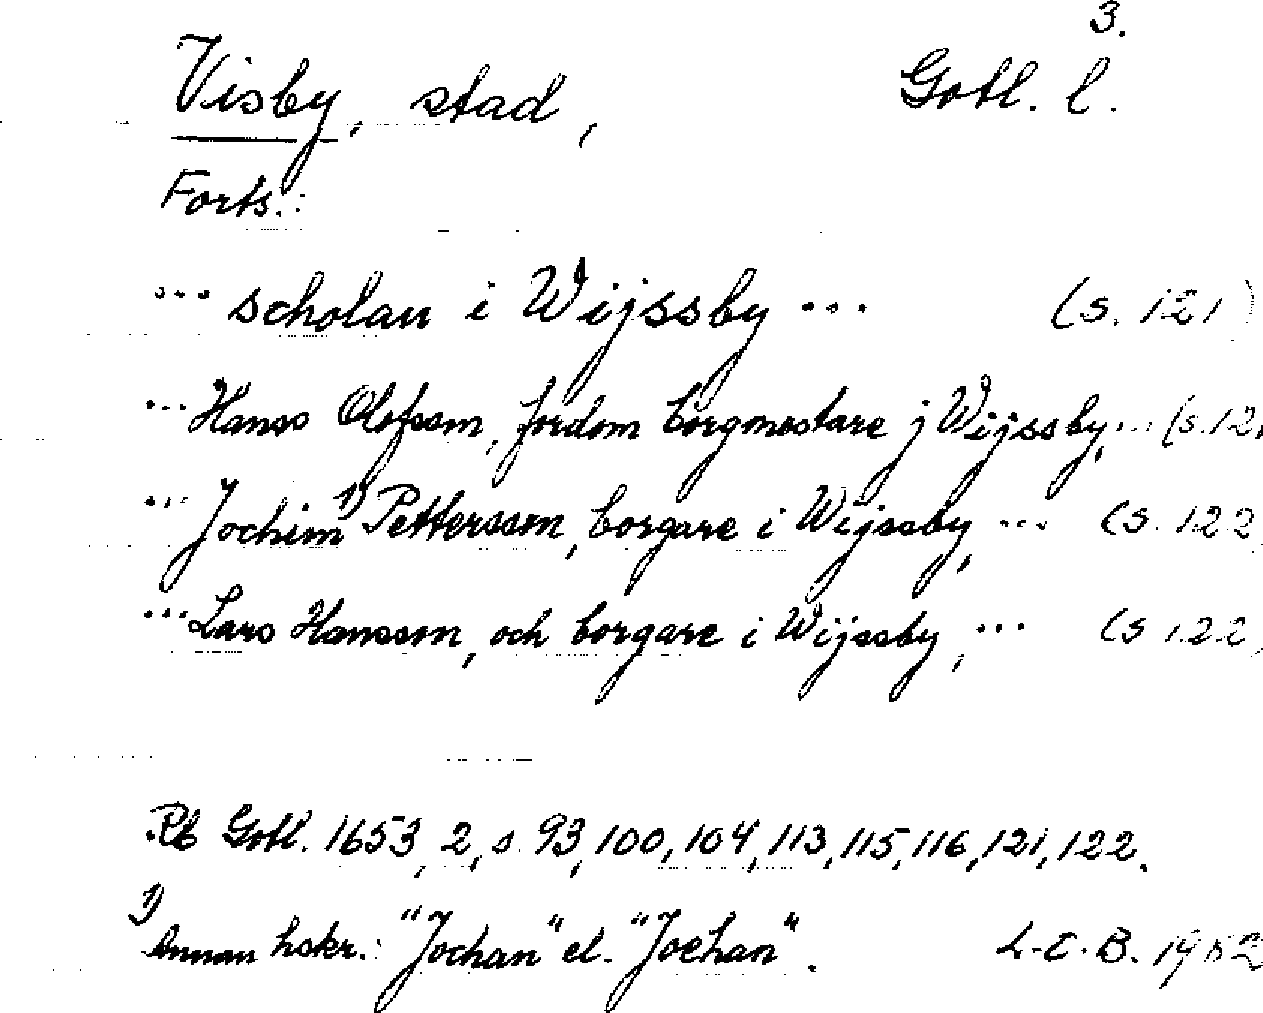 3.
Visby, stad, Gotl. l.
Forts.:
... scholan i Wijssby ... (s. 121)
... Hanss Olofsson, fordom borgmestare j Wijssby, ... (s. 121
... Jochim 1) Pettersson, borgare i Wijssby, ... (s. 122
... Lars Hansson, och borgare i Wijssby, ... (s 122)
Rb Gotl. 1653, 2, s. 93, 100, 104, 113, 115, 116, 121, 122.
1) Annan hskr.: "Jochan" el. "Joehan". L.E.B. 1952